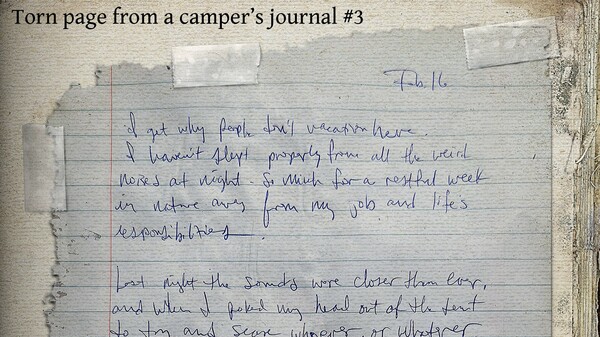 Torn page from a camper's journal #3
Feb. 16
I get why people don't vacation here.
I haven't slept properly from all the weird
noises at night. So much for a restful week
in nature away from my job and life's
responsibilities
Last night the sounds were closer than ever,
and when I poked my head out of the tent
to try and scare whoever, or whatever